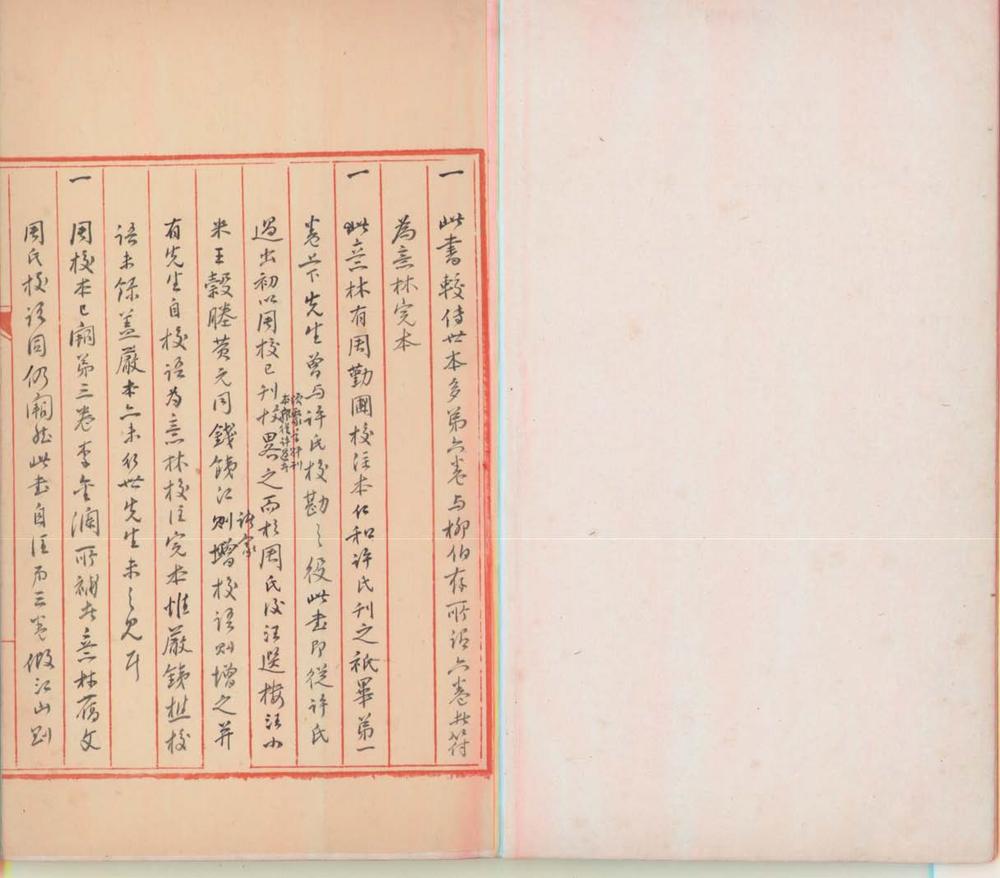 一 此書較傳世本多第六卷與柳伯存所謂六卷者符
為意林完本
一 此意林有周勤圃校注本仁和許氏刊之祇畢第一
卷上下先生曾與許氏校勘之役此書即從許氏
過出初以周校已刊校畧之而於周氏後汪選樓汪小
米王穀塍黃元同錢鐵江則增校語則增之并
諸家
有先生自校語為意林校注完本惟嚴鐵樵校
語未錄蓋嚴本亦未行世先生未之見耳
一 周校本已闕第三卷李金瀾所補者意林舊文
周氏校語同仍闕然此書自注而三卷假江山劉